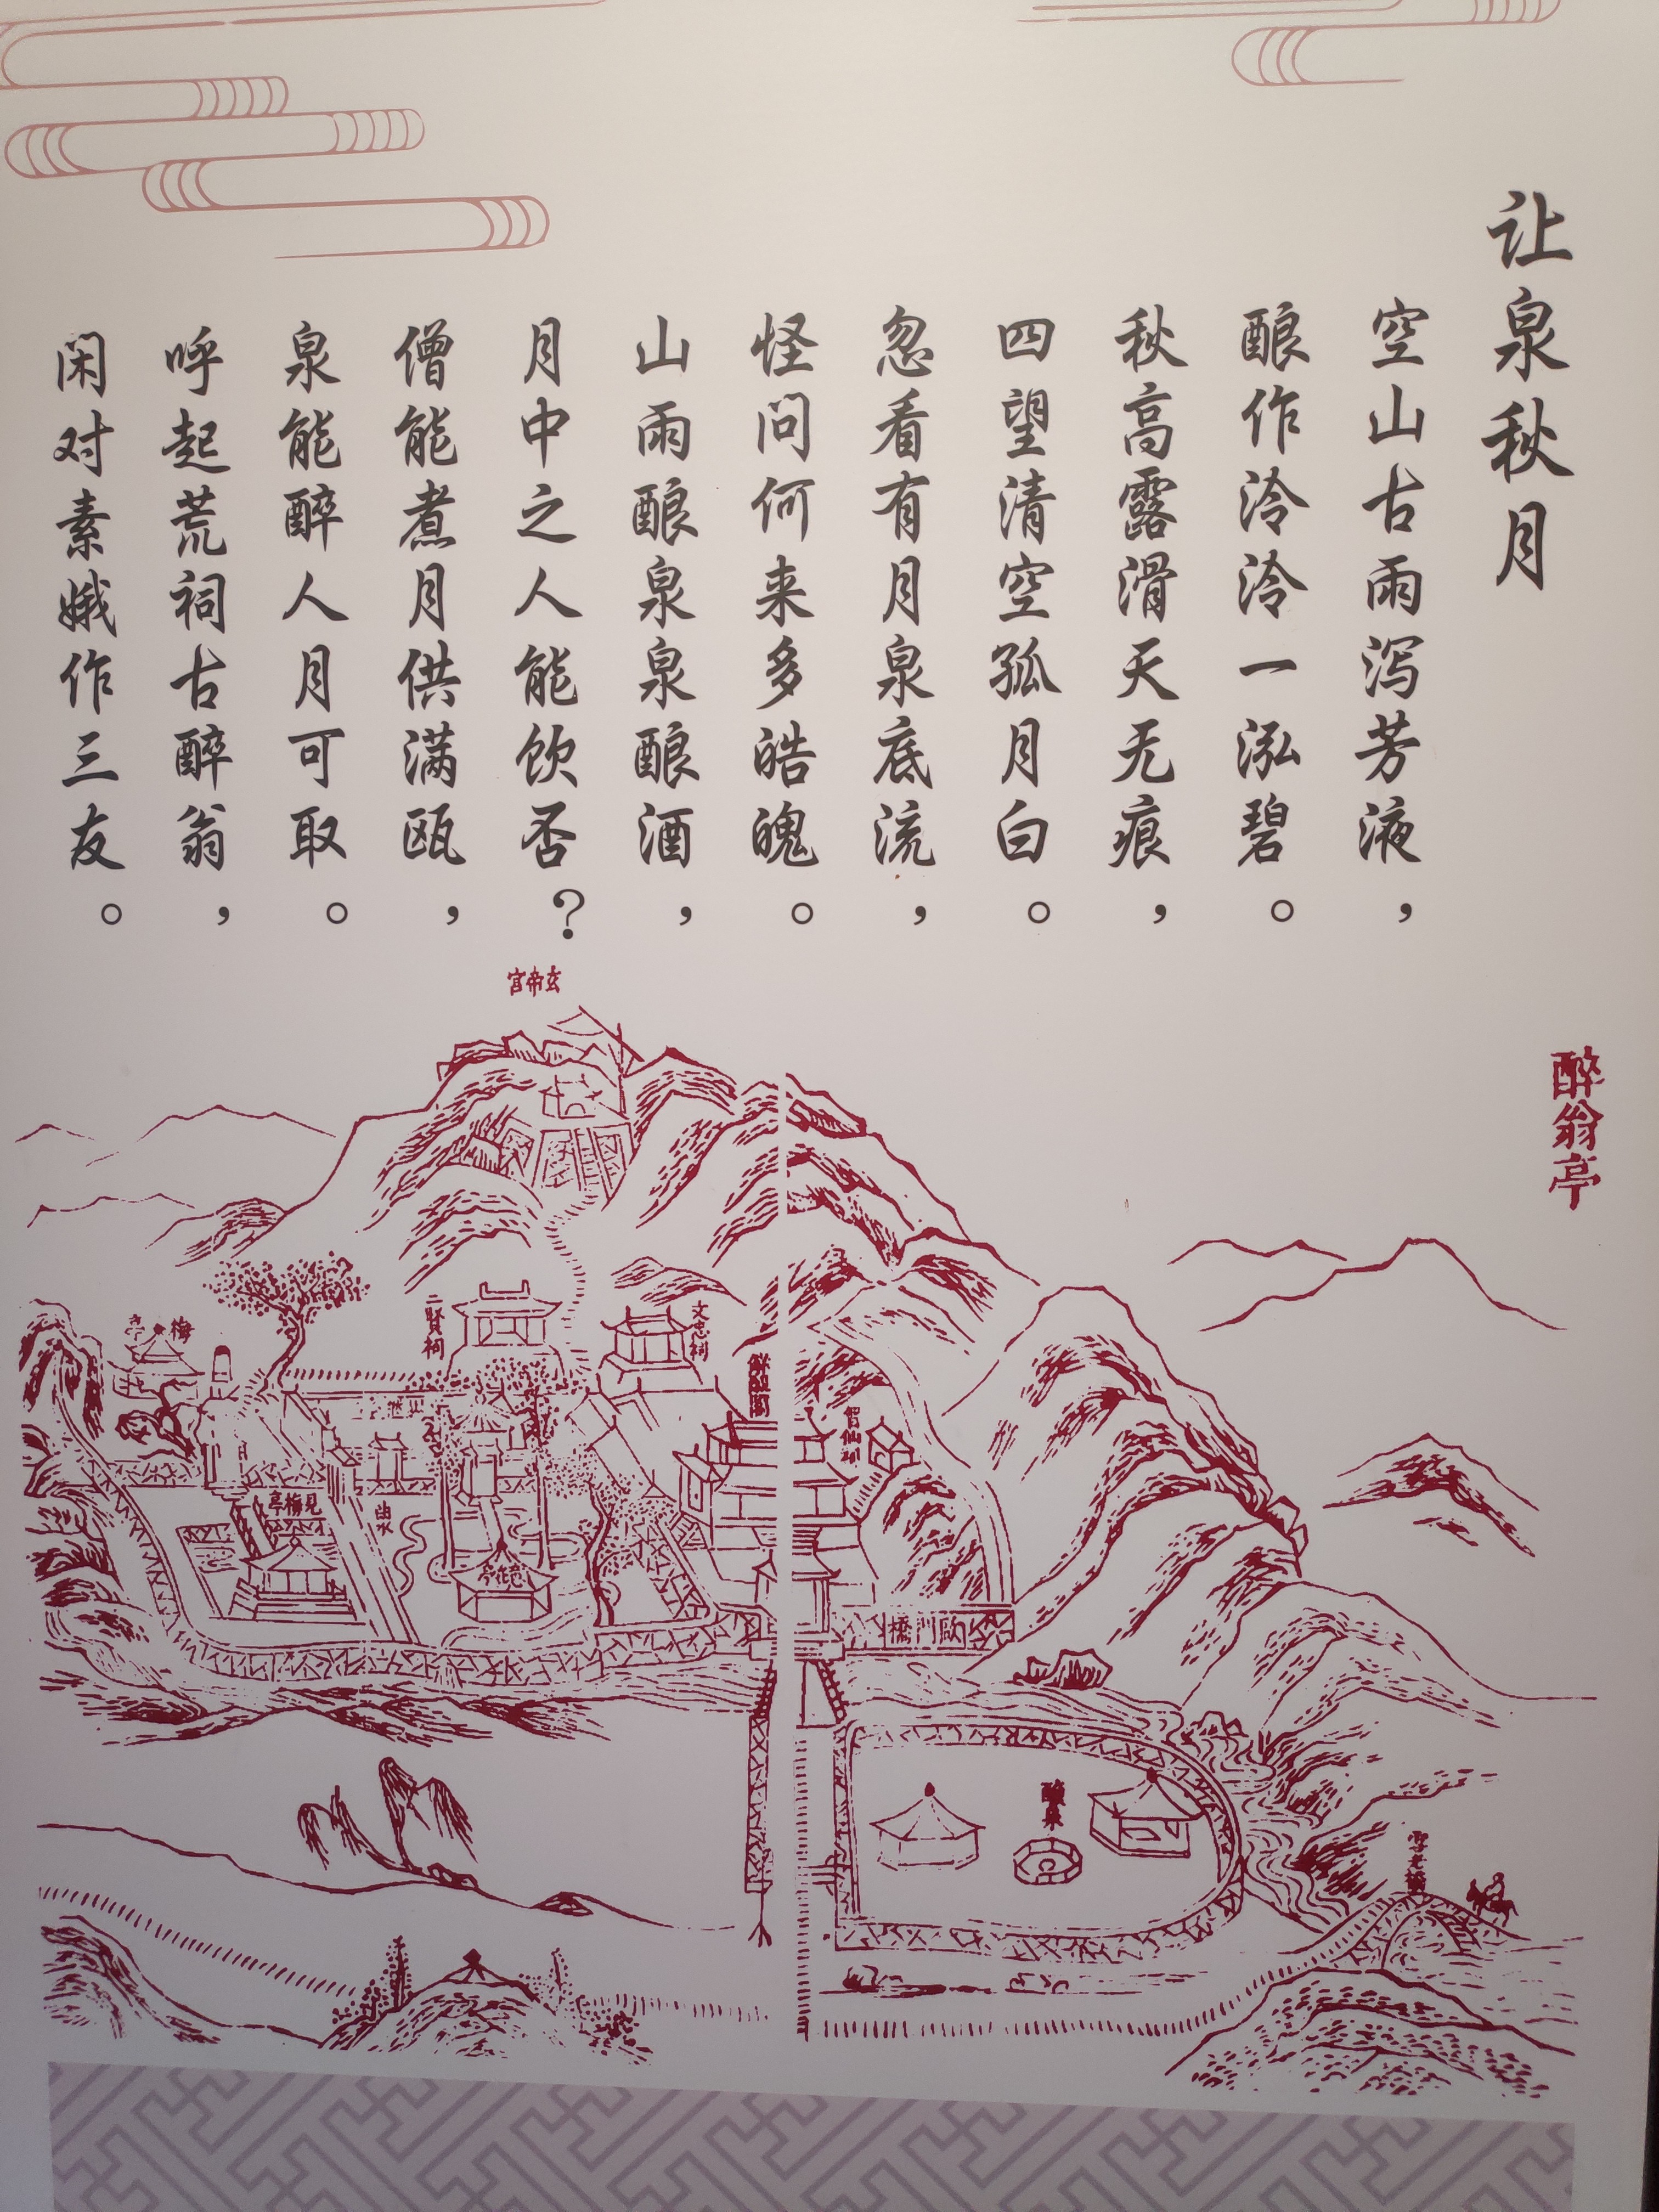 让泉秋月
空山古雨泻芳液，
酿作泠泠一泓碧。
秋高露滑天无痕，
四望清空孤月白。
忽看有月泉底流，
怪问何来多皓魄。
山雨酿泉泉酿酒，
月中之人能饮否？
僧能煮月供满瓯，
泉能醉人月可取。
呼起荒祠古醉翁，
闲对素娥作三友。
醉翁亭
玄帝宫
二贤祠
文忠祠
梅亭
見梅亭
醒仙閣
門橋
釀泉